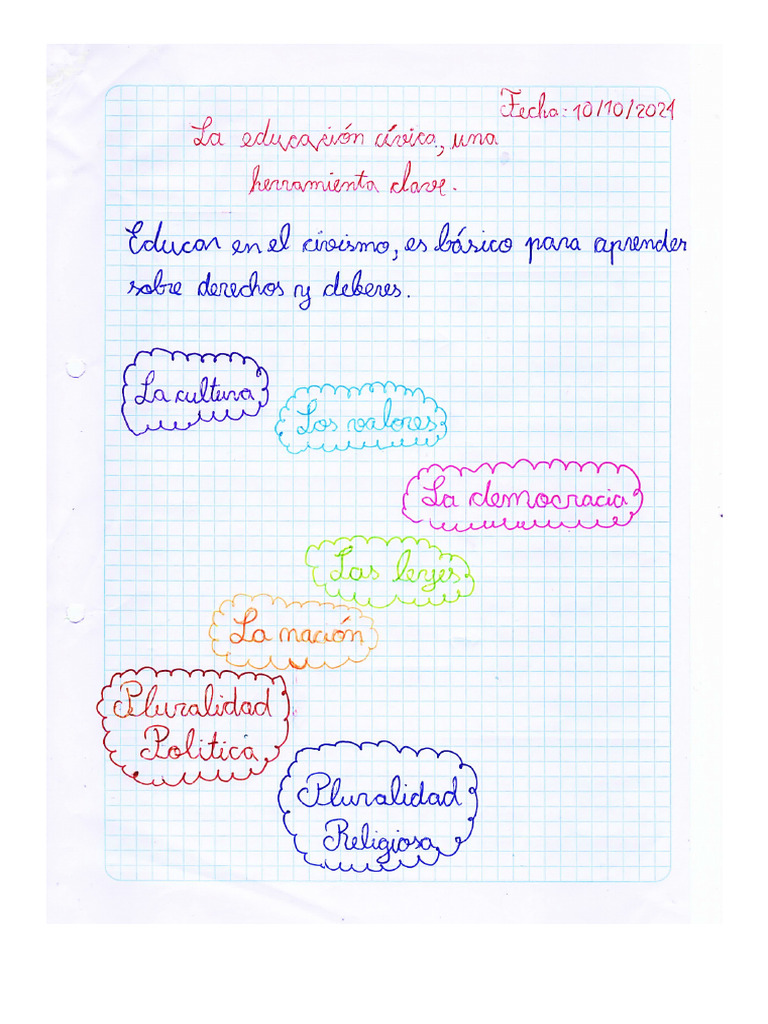 Fecha: 10/10/2021
La educación cívica, una
herramienta clave.
Educar en el civismo, es básico para aprender
sobre derechos y deberes.
La cultura
Los valores
La democracia
Las leyes
La nación
Pluralidad
Política
Pluralidad
Religiosa